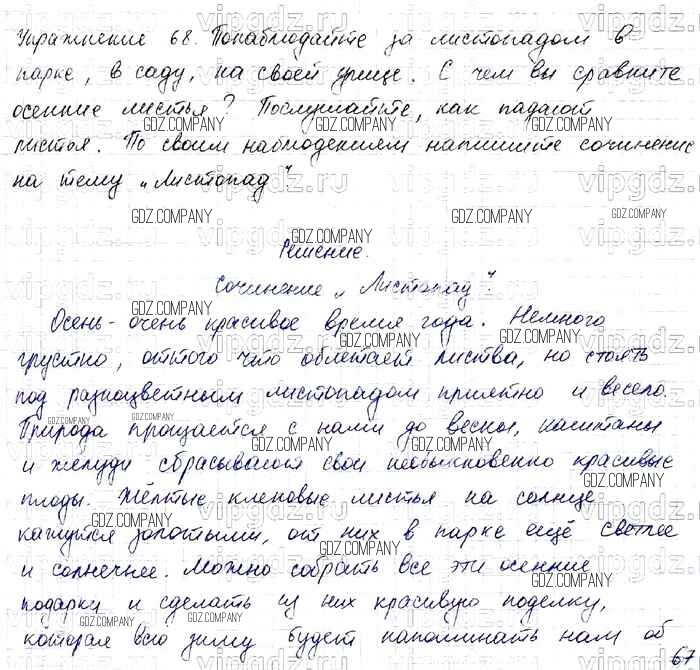 Упражнение 68. Понаблюдайте за листопадом в
парке, в саду, на своей улице. С чем вы сравните
осенние листья? Послушайте, как падают
листья. По своим наблюдениям напишите сочинение
на тему „Листопад".
Решение.
Сочинение „Листопад".
Осень - очень красивое время года. Немного
грустно, оттого что облетает листва, но стоять
под разноцветным листопадом приятно и весело.
Природа прощается с нами до весны, каштаны
и жёлуди сбрасывают свои необыкновенно красивые
плоды. Жёлтые кленовые листья на солнце
кажутся золотыми, от них в парке ещё светлее
и солнечнее. Можно собрать все эти осенние
подарки и сделать из них красивую поделку,
которая всю зиму будет напоминать нам об
67